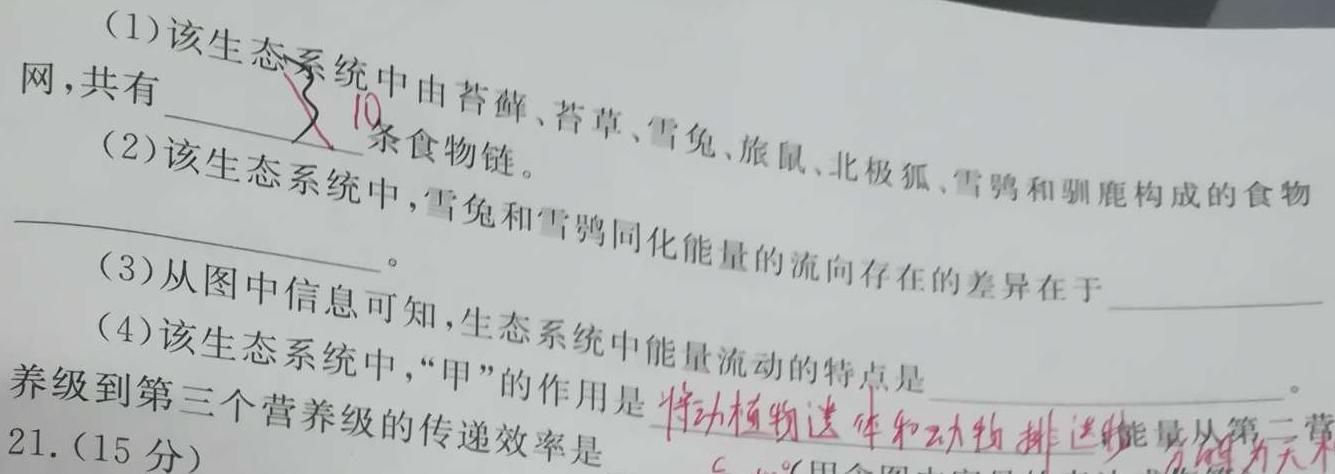 (1)该生态系统中由苔藓、苔草、雪兔、旅鼠、北极狐、雪鸮和驯鹿构成的食物
网,共有 3 10 条食物链。
(2)该生态系统中,雪兔和雪鸮同化能量的流向存在的差异在于
。
(3)从图中信息可知,生态系统中能量流动的特点是 。
(4)该生态系统中,“甲”的作用是 将动植物遗体和动物排遗物 能量从第二营
分解为无机
养级到第三个营养级的传递效率是
21.(15分)